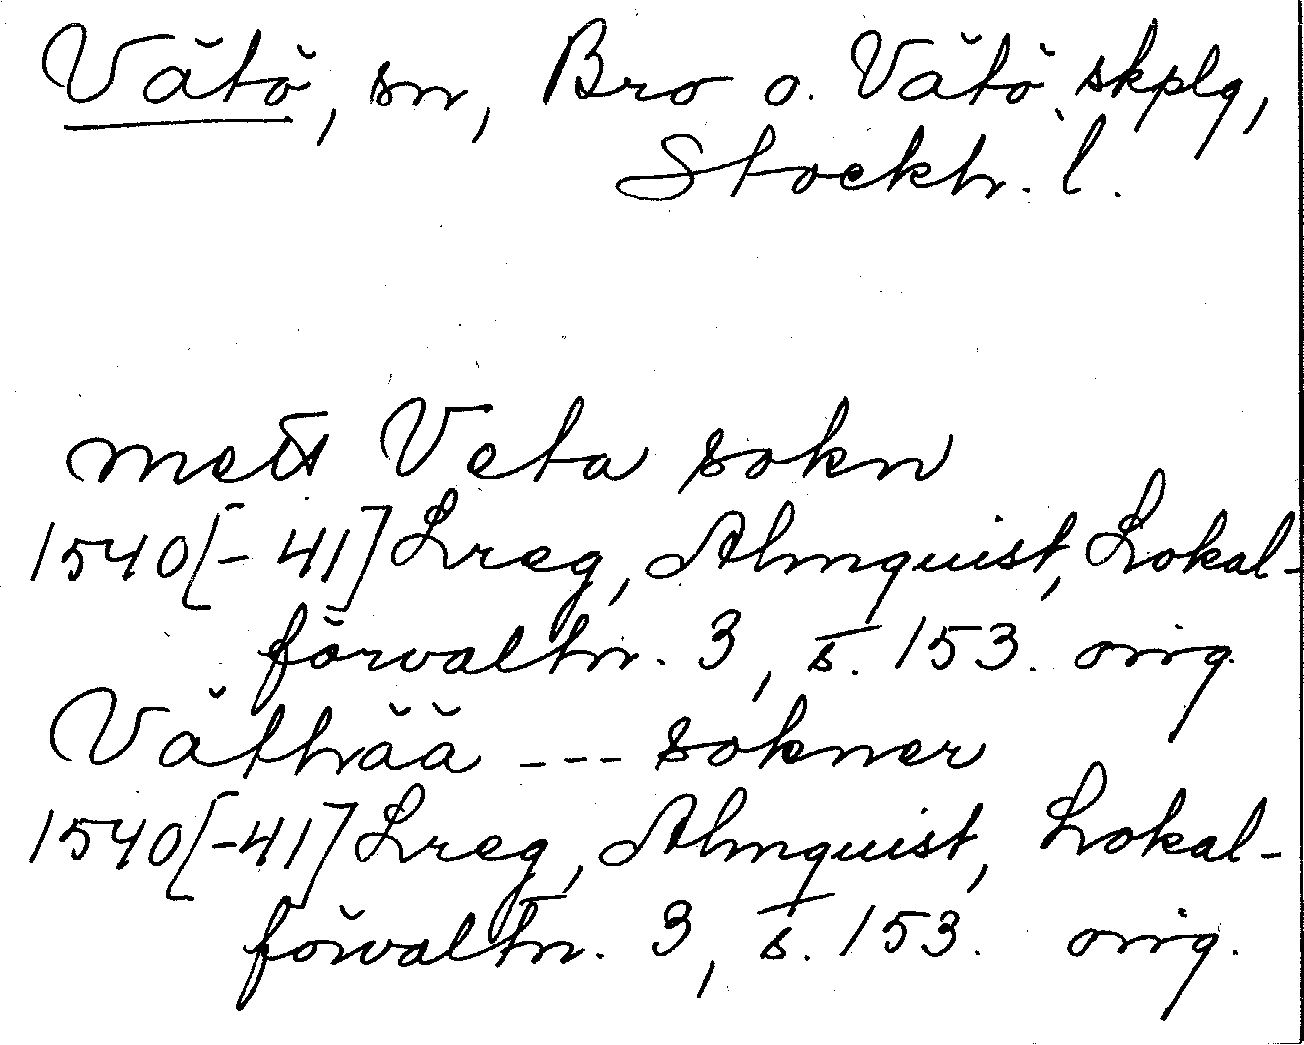 Vätö, sn, Bro o. Vätö skplg,
Stockh. l.
Veta sokn
1540[-41] Lreg, Almquist, Lokal-
förvaltn. 3, s. 153. orig.
Väthää --- sokner
1540[-41] Lreg, Almquist, Lokal-
förvaltn. 3, s. 153. orig.